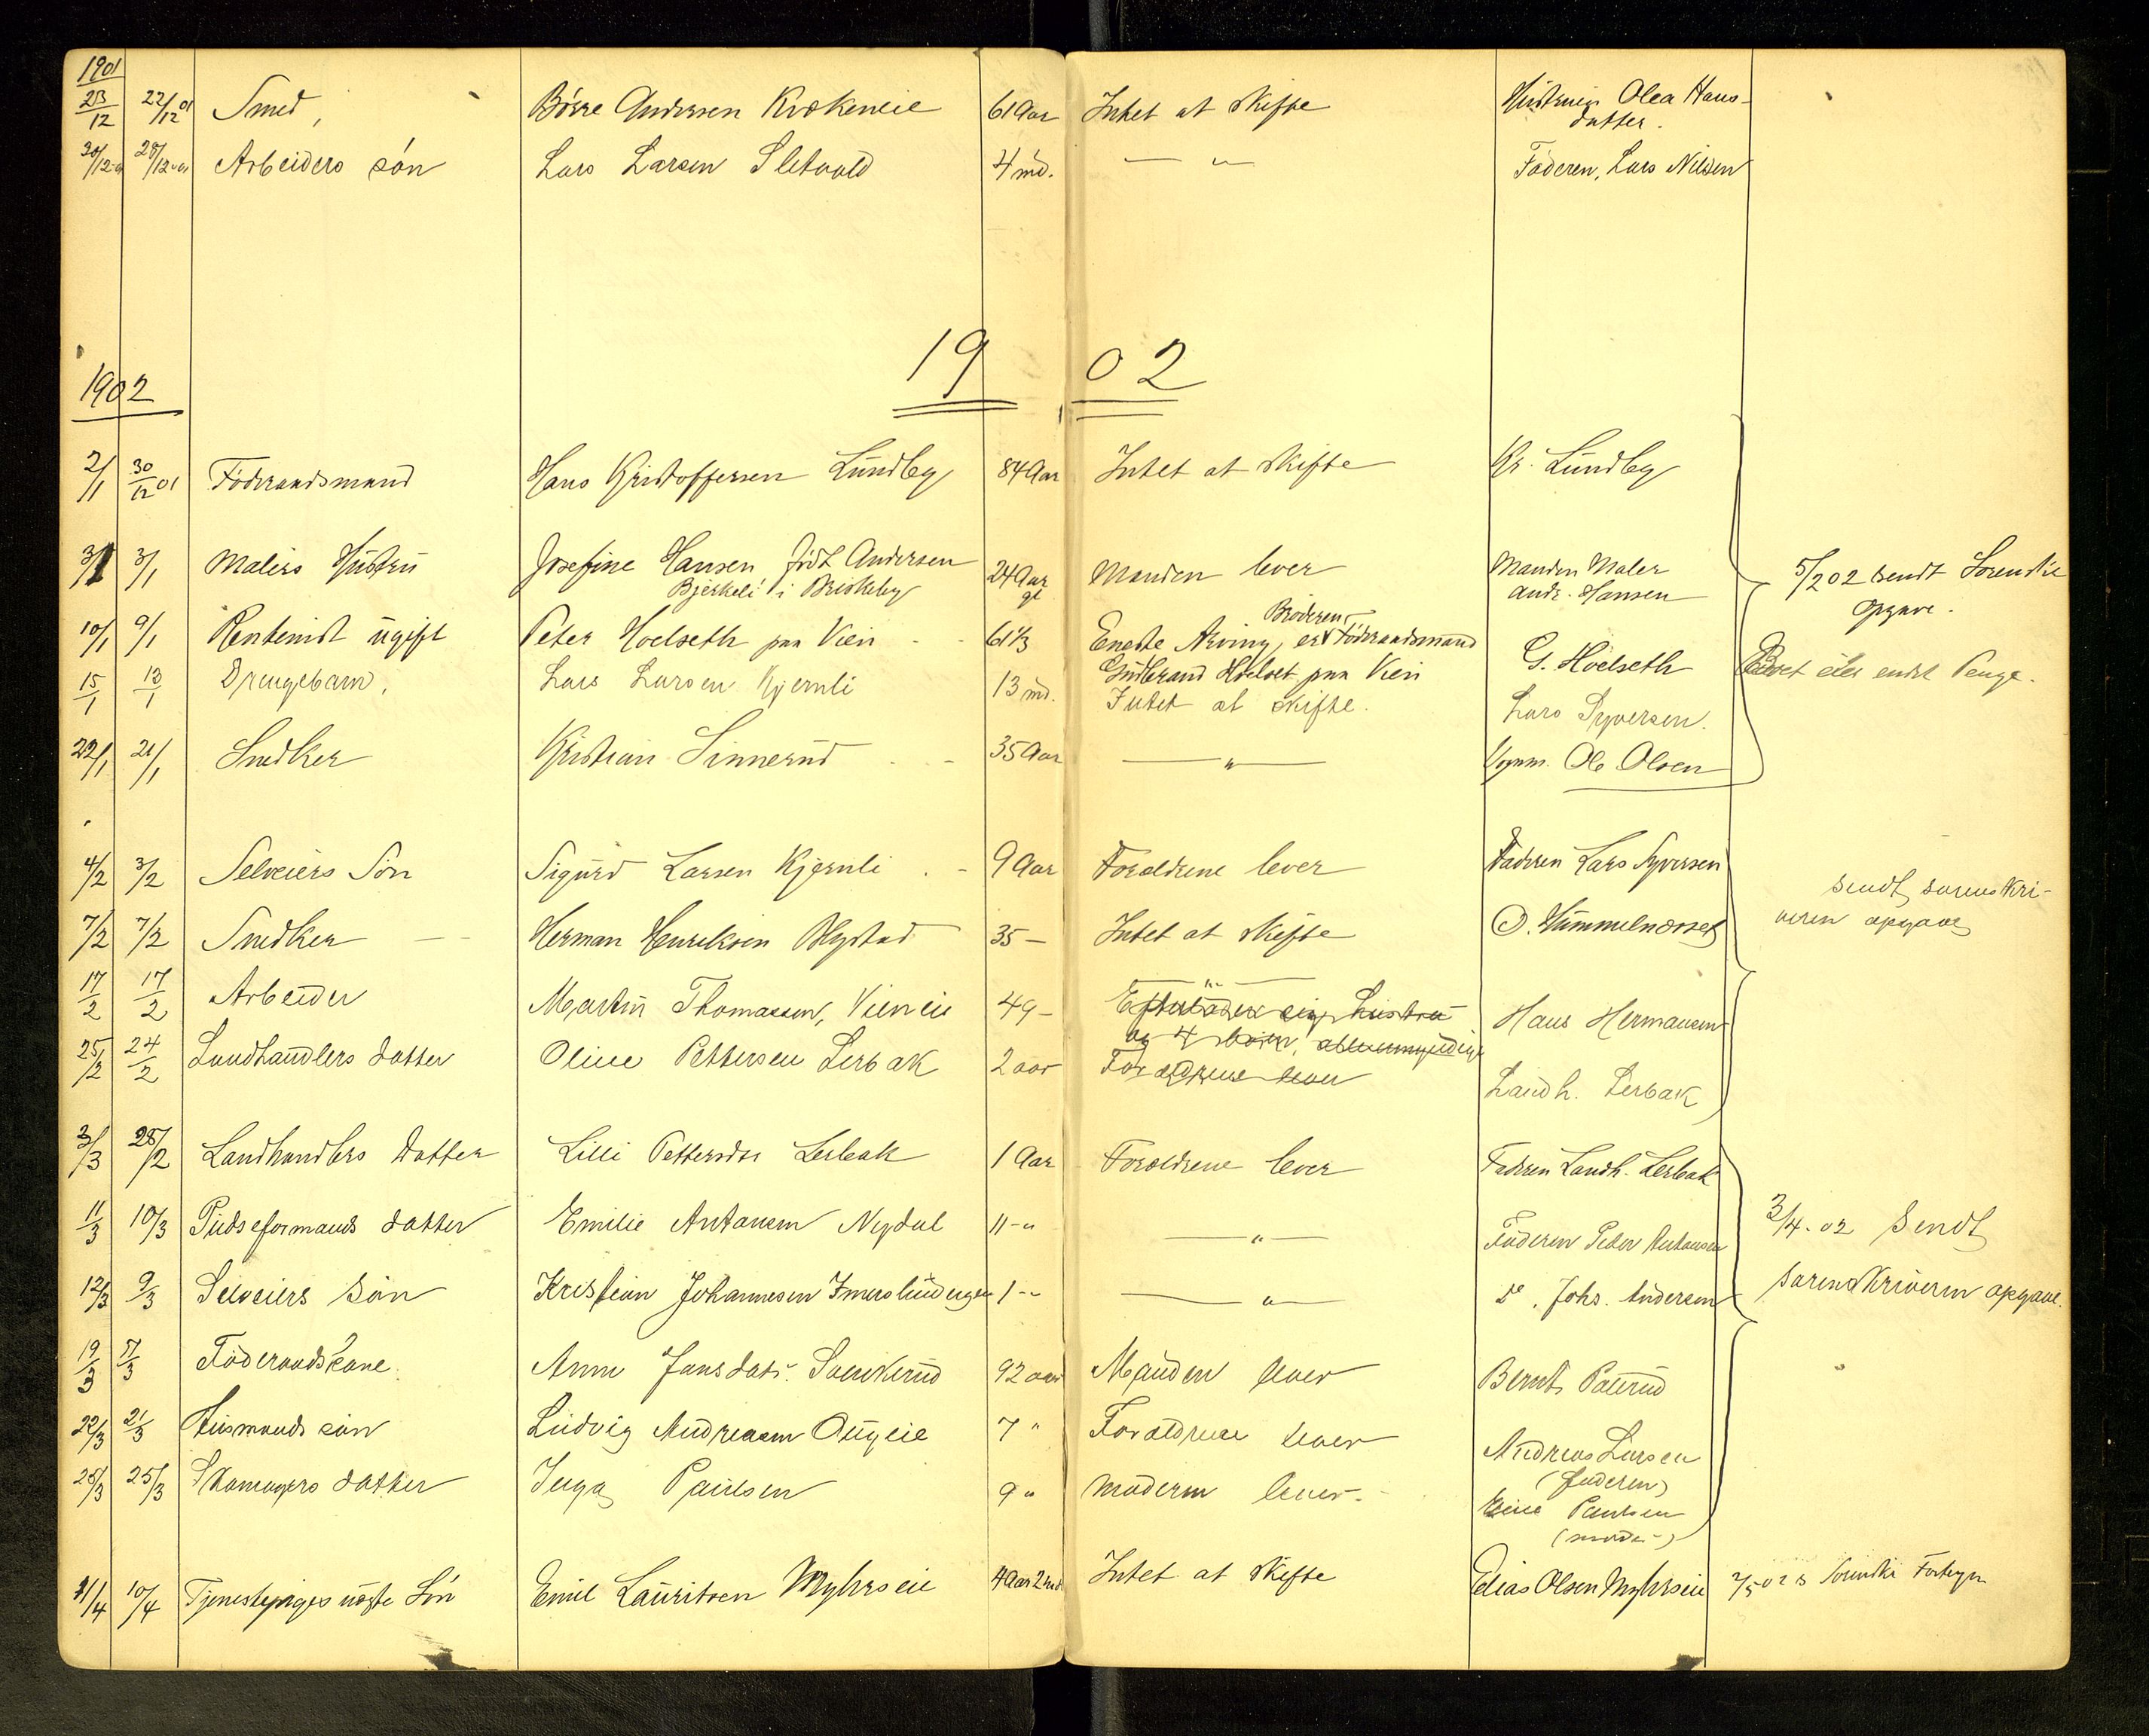 1901
23/12 22/12 01 Smed, Börre Andersen Krokeneie 61 Aar Intet at skifte Hustruen Olea Hans-
datter.
30/12-01 28/12-01 Arbeiders sön Lars Larsen Sletvold 4 md. — " — Faderen, Lars Nilsen
19 02
1902
2/1 30/12 01 Föderaadsmand Hans Kristoffersen Lundby 84 Aar Intet at skifte Kr. Lundby
3/1 3/1 Malers Hustru Josefine Hansen född Andersen 24 Aar Manden lever Manden Maler
Bjerkeli i Briskeby gl Andr. Hansen
5/2 02 sendt Sorenskr
opgave.
Broderen
10/1 9/1 Rentenist ugift Peter Hoelseth paa Vien 61 1/3 Eneste Arving, er Föderaadsmand G. Hoelseth
Gudbrand Hoelset paa Vien
Boet eier endel Penge.
15/1 13/1 Drengebarn, Lars Larsen Kjernli 13 md. Intet at skifte. Lars Syversen.
22/1 21/1 Snedker Kristian Sinnerud 35 Aar — " — Ole Olsen
4/2 3/2 Selveiers Sön Sigurd Larsen Kjernli 9 Aar Forældrene lever Faderen Lars Syversen
sendt sorenskri-
veren opgave
7/2 7/2 Snedker Herman Henriksen Alystad 35 — Intet at skifte O. Hammelnæsset
17/2 17/2 Arbeider Martin Thomassen, Vieneie 49 — — " — Hans Hermansen
Efterlader sig hustru
og 4 börn,
25/2 24/2 Landhandlers datter Oline Pettersen Lerbak 2 aar Forældrene lever Landh. Lerbak
3/3 28/2 Landhandlers Datter Lilli Pettersdtr Lerbak 1 Aar Forældrene lever Faderen Landh. Lerbak
11/3 10/3 Pudseformands datter Emilie Antonsen Nydal 11 — " — " — Faderen Peder Antonsen
3/4-02 Sendt
12/3 9/3 Selveiers sön Kristian Johannesen Imerslundengen 1 — " — " — do. Johs. Andersen
sorenskriveren opgave.
19/3 17/3 Föderaadskone Anne Jansdatr. 92 aar Manden lever Bernt Paurud
22/3 21/3 Husmands sön Ludvig Andreasen Augeie 7 " Forældrene lever Andreas Larsen
(faderen)
25/3 25/3 Skomagers datter Inga Paulsen 9 " Moderen lever. Paulsen
(moder)
11/4 10/4 Tjenestepiges uægte Sön Emil Lauritsen Myhrseie 4 Aar 2 md Intet at skifte Elias Olsen Myhrseie 2/5 02 s Sorenskr Fortegn